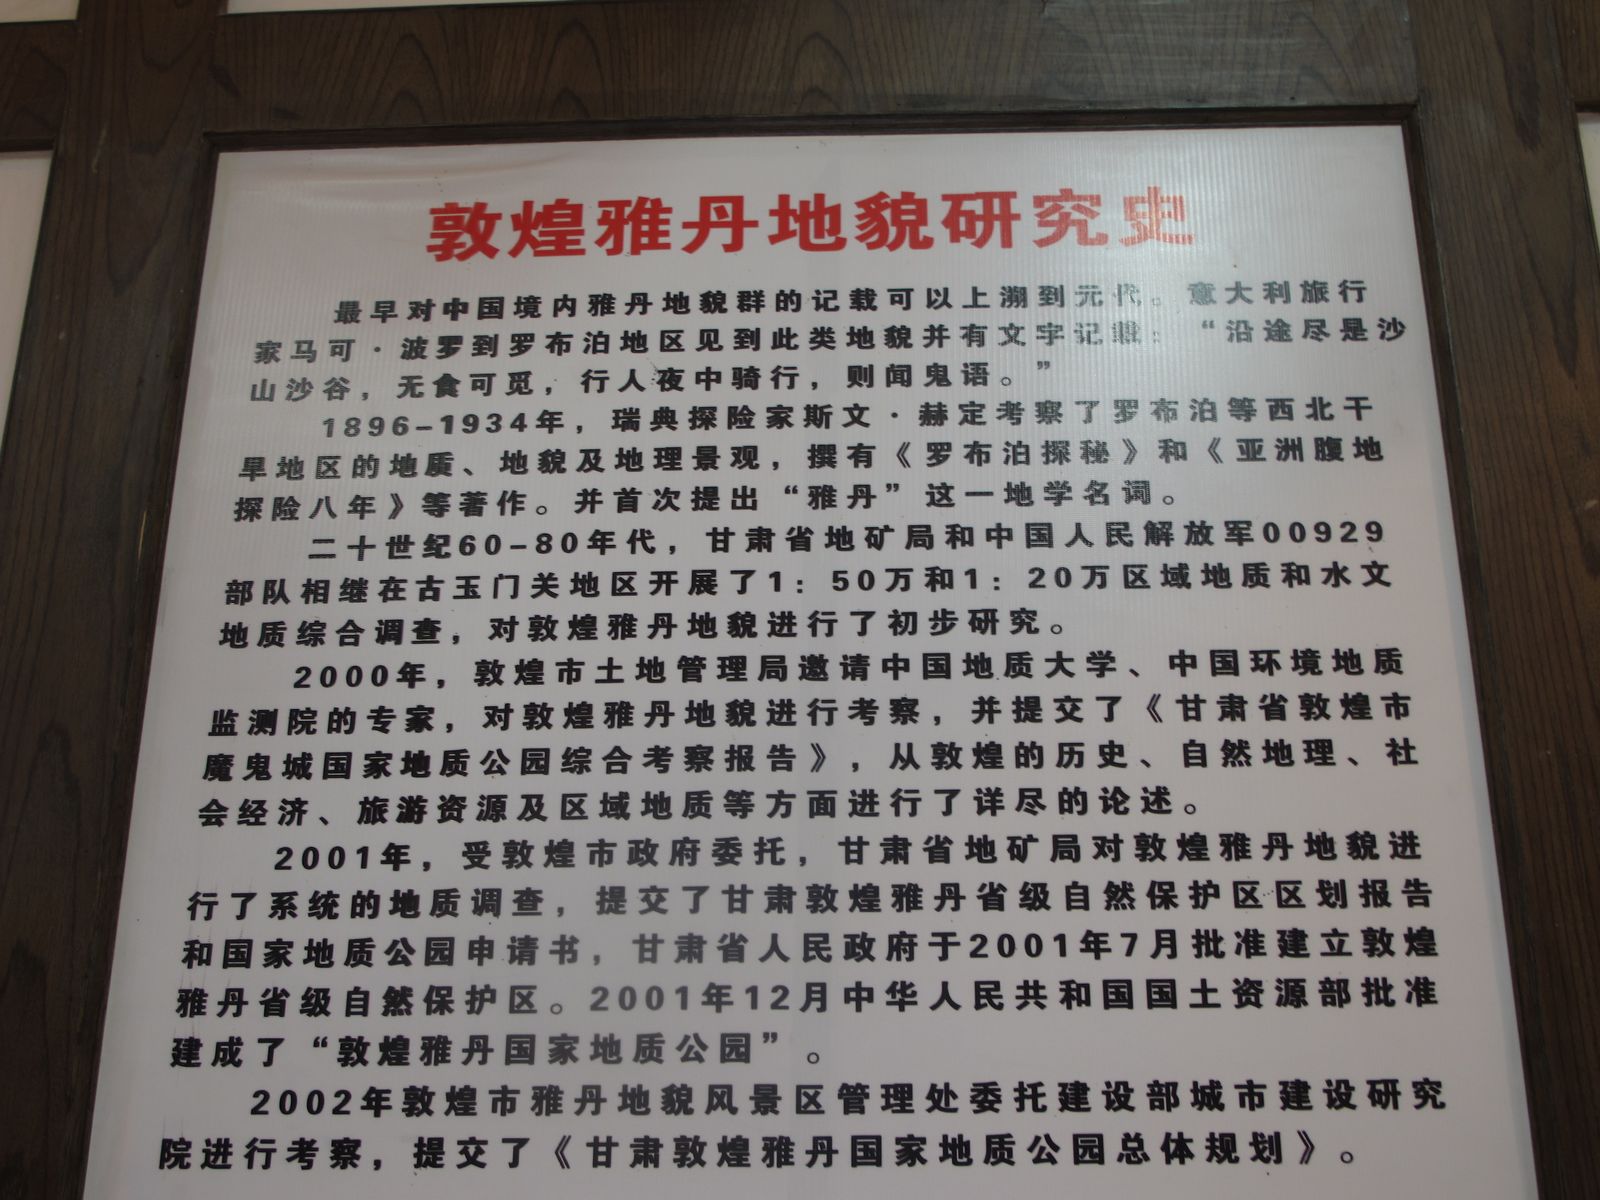 敦煌雅丹地貌研究史
最早对中国境内雅丹地貌群的记载可以上溯到元代。意大利旅行
家马可·波罗到罗布泊地区见到此类地貌并有文字记载：“沿途尽是沙
山沙谷，无食可觅，行人夜中骑行，则闻鬼语。”
1896-1934年，瑞典探险家斯文·赫定考察了罗布泊等西北干
旱地区的地质、地貌及地理景观，撰有《罗布泊探秘》和《亚洲腹地
探险八年》等著作。并首次提出“雅丹”这一地学名词。
二十世纪60-80年代，甘肃省地矿局和中国人民解放军00929
部队相继在古玉门关地区开展了1：50万和1：20万区域地质和水文
地质综合调查，对敦煌雅丹地貌进行了初步研究。
2000年，敦煌市土地管理局邀请中国地质大学、中国环境地质
监测院的专家，对敦煌雅丹地貌进行考察，并提交了《甘肃省敦煌市
魔鬼城国家地质公园综合考察报告》，从敦煌的历史、自然地理、社
会经济、旅游资源及区域地质等方面进行了详尽的论述。
2001年，受敦煌市政府委托，甘肃省地矿局对敦煌雅丹地貌进
行了系统的地质调查，提交了甘肃敦煌雅丹省级自然保护区区划报告
和国家地质公园申请书，甘肃省人民政府于2001年7月批准建立敦煌
雅丹省级自然保护区。2001年12月中华人民共和国国土资源部批准
建成了“敦煌雅丹国家地质公园”。
2002年敦煌市雅丹地貌风景区管理处委托建设部城市建设研究
院进行考察，提交了《甘肃敦煌雅丹国家地质公园总体规划》。